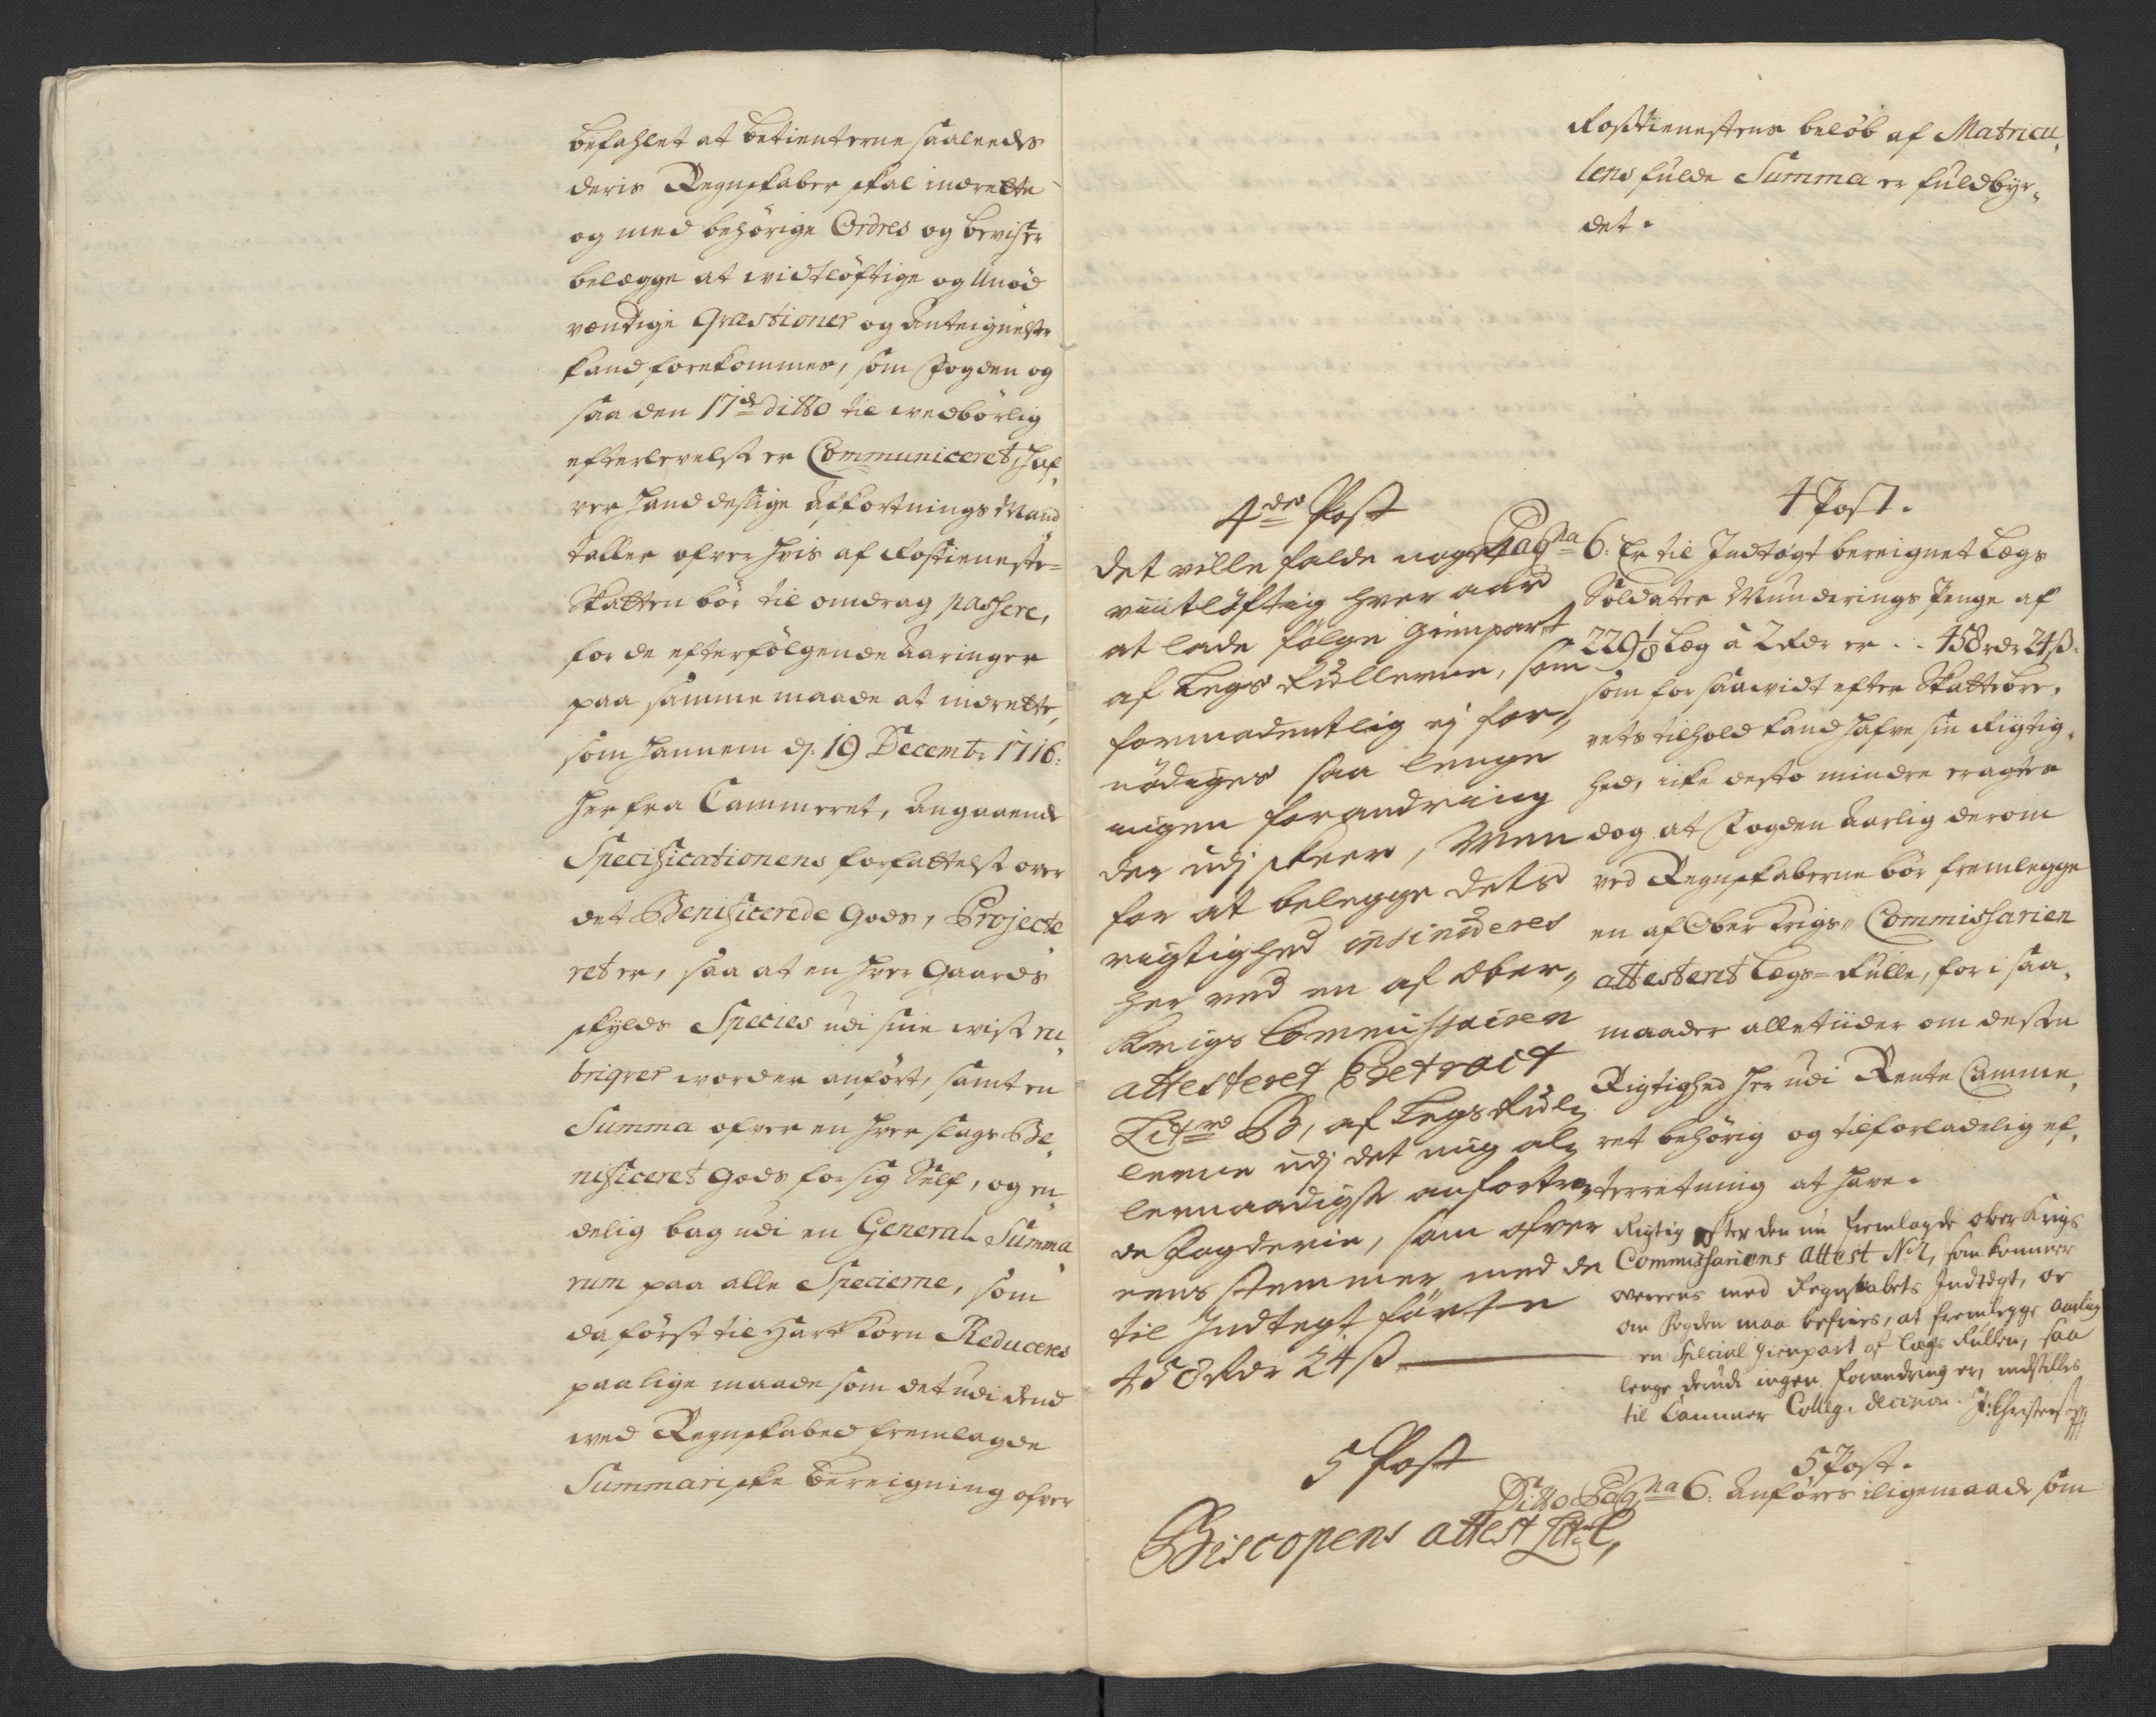 befahlet at betienterne saaleedes
deris Regnskaber skal indrette
og med behörige Ordres og beviser
belegge at widtlöftige og Unöd
vendige Qvæstioner og Anteignelser
kand forekommes, som Fogden og
saa den 17de ditto til wedbörlig
efterlevelse er Communiceret, Haf,
ver hand deslige Afkortnings Mand
taller ofver hvis af Rostieneste-
Skatten bör til omdrag passere,
for de efterfölgende Aaringer
paa samme maade at indrette,
som hannem d: 19 Decembr: 1716:
her fra Cammeret, Angaaende
Specificationens forfattelse over
det Benificerede Gods, Projecte
ret er, saa at en hver Gaards
skylds Species udi sine wisse ru,
briqver worder anfört, samt en
Summa ofver en hver slags Be,
nificeret Gods for sig Self, og en,
delig bag udi en General Summa
rum paa alle Specierne, som
da först til Hart Korn Reduceres
paa lige maade som det udi dend
wed Regnskabed fremlagde
Summariske Bereigning ofver
Rosstienestens belöb af Matricu,
lens fulde Summa er fuldbyr,
det.
4de Post
det ville falde noget
viitlöftig hver aar
at lade fölge gienpart
af Legs Rullerne, som
formodentlig ej for,
nödiges saa lenge
ingen forandring
der udj skeer, Men
for at belegge dets
rigtighed insinueres
her ved en af Ober,
Krigs Commissairen
attesteret Extract
Litra B, af Legs Rul,
lerne udj det mig al,
lernaadigst anfortroe,
de Fogderie, som ofver
eens stemmer med de
til Indtegt förte
458 Rdr 24 ß
5 Post
Biscopens attest Litr: C,
4 Post.
Pagna 6: Er til Indtegt bereignet Legs
Soldater Munderings Penge af
229 1/8 Leg à 2 Rdr er . . 458 rdr 24 ß:
som for saawidt efter Skattebre,
vets tilhold kand hafve sin Rigtig,
hed, icke desto mindre eragtes
dog at Fogden Aarlig derom
ved Regnskaberne bör fremlegge
en af Ober Krigs Commissarien
attesteret Legs-Rulle, for i saa,
maader alletiider om dessen
Rigtighed her udi Rente Camme,
ret behörig og tilforladelig ef,
terretning at have.
Rigtig efter den nu fremlagde ober Krigs
Commissariens attest No 2, som kommer
overeens med Regnskabets Indtegt, or
om Fogden maa befries, at fremlegge aarlig
en special gienpart af Legs Rullen, saa
lenge derudi ingen forandring er, indstilles
til Cammer Colleg: decision. J: Christens
5 Post.
Ditto Pagna 6: Anföres iligemaade som